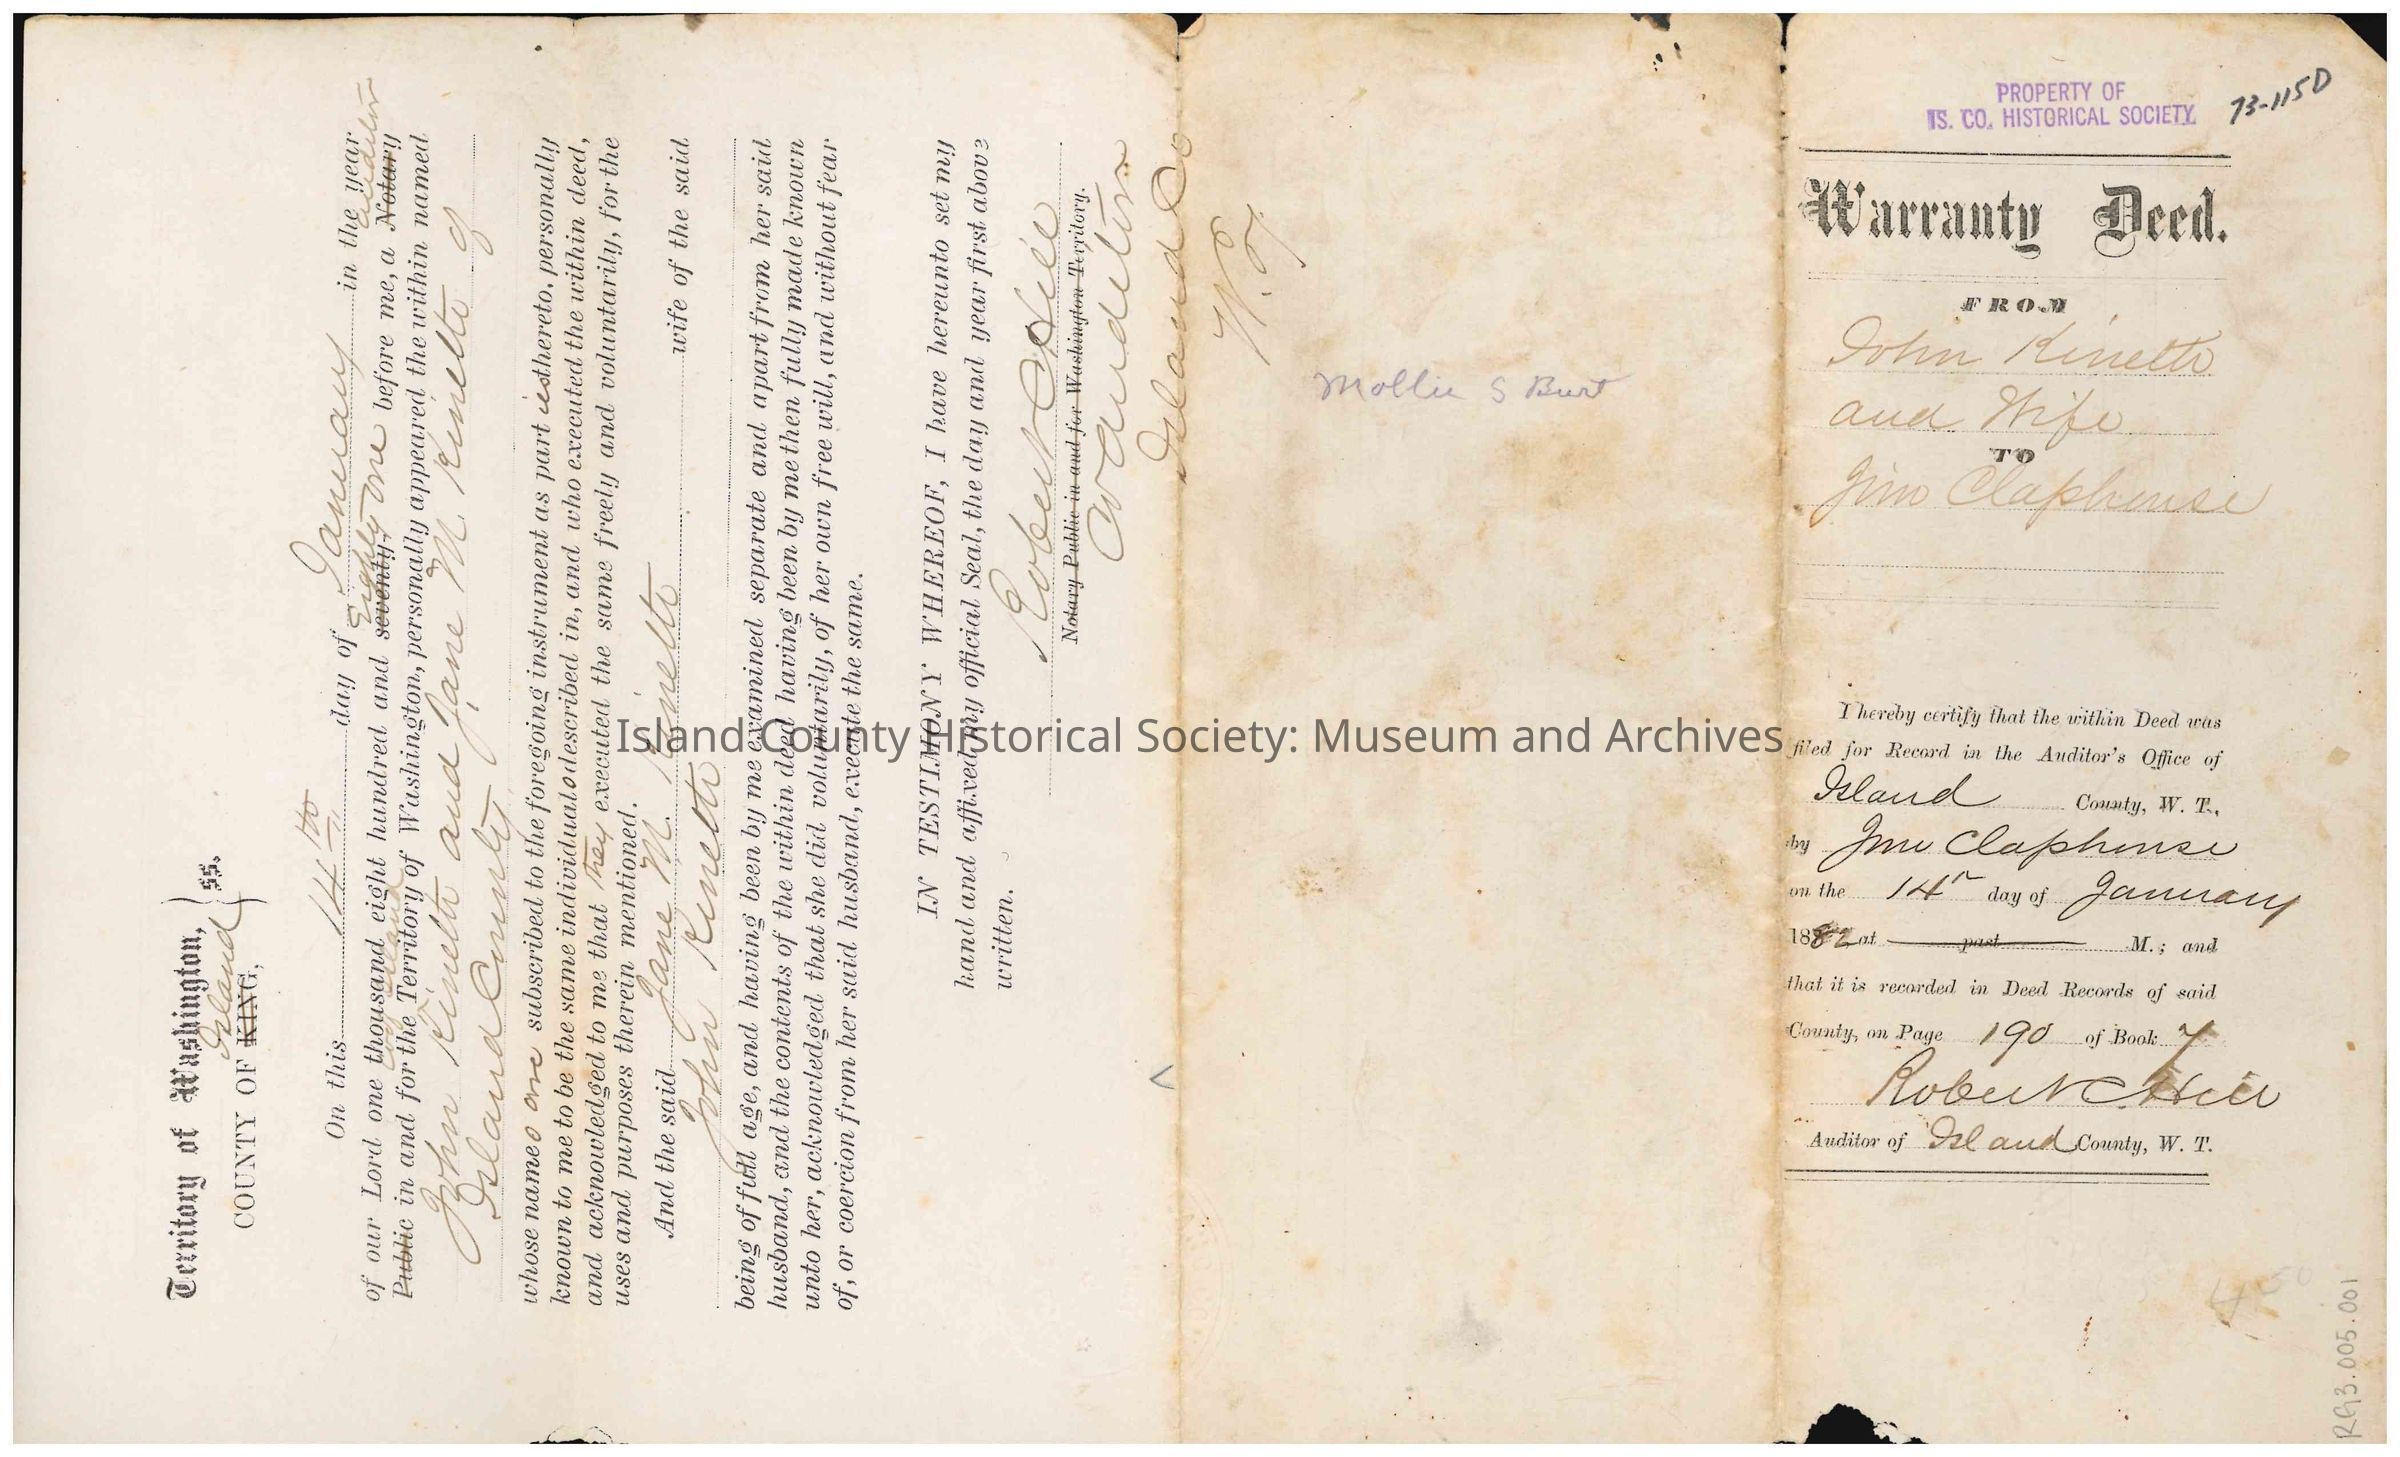 Territory of Washington,
Island } ss.
COUNTY OF KING,
On this 14th day of January in the year
Eighty One Auditor
of our Lord one thousand eight hundred and seventy- before me, a Notary
Public in and for the Territory of Washington, personally appeared the within named
John Kineth and Jane M Kineth of
Island County
whose names are subscribed to the foregoing instrument as part ies thereto, personally
known to me to be the same individuals described in, and who executed the within deed,
and acknowledged to me that they executed the same freely and voluntarily, for the
uses and purposes therein mentioned.
And the said Jane M. Kineth wife of the said
John Kineth
being of full age, and having been by me examined separate and apart from her said
husband, and the contents of the within deed having been by me then fully made known
unto her, acknowledged that she did voluntarily, of her own free will, and without fear
of, or coercion from her said husband, execute the same.
IN TESTIMONY WHEREOF, I have hereunto set my
hand and affixed my official Seal, the day and year first above
written.
Robert C Hill
Notary Public in and for Washington Territory.
Auditor
Island Co
W.T.
Mollie S Burt
PROPERTY OF
IS. CO. HISTORICAL SOCIETY
73-115D
Warranty Deed.
FROM
John Kineth
and Wife
TO
Jno Claphouse
I hereby certify that the within Deed was
filed for Record in the Auditor's Office of
Island County, W. T.,
by Jno Claphouse
on the 14th day of January
1882 at past M.; and
that it is recorded in Deed Records of said
County, on Page 190 of Book 7
Robert C Hill
Auditor of Island County, W. T.
4 50
RG3.005.001
Island County Historical Society: Museum and Archives